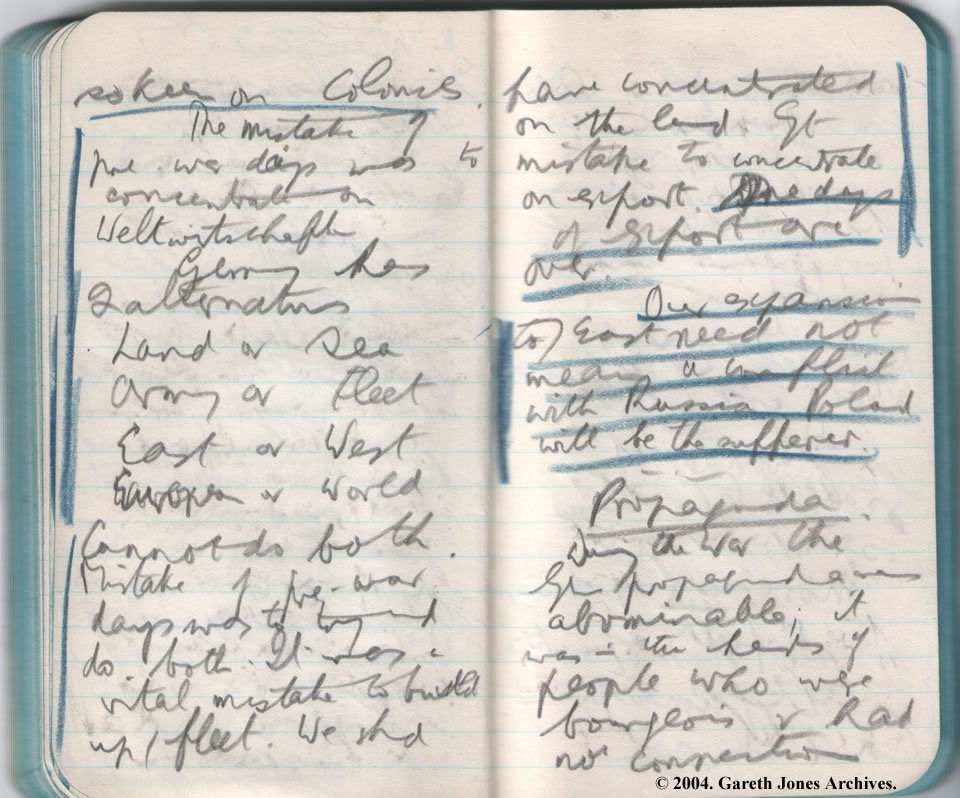 so keen on Colonies.
The mistake of
pre war days was to
concentrate on
Weltwirtschaft
Germy has
2 alternatives
Land or Sea
Army or Fleet
East or West
European or World
Cannot do both.
Mistake of pre-war
days was to try and
do both. It was a
vital mistake to build
up fleet. We shd
have concentrated
on the land. Gt
mistake to concentrate
on export. The days
of export are
over.
Our expansion
to East need not
mean a conflict
with Russia Poland
will be the sufferer.
Propaganda.
During the war the
Gn propaganda was
abominable; it
was in the hands of
people who were
bourgeois & had
no connection
© 2004. Gareth Jones Archives.